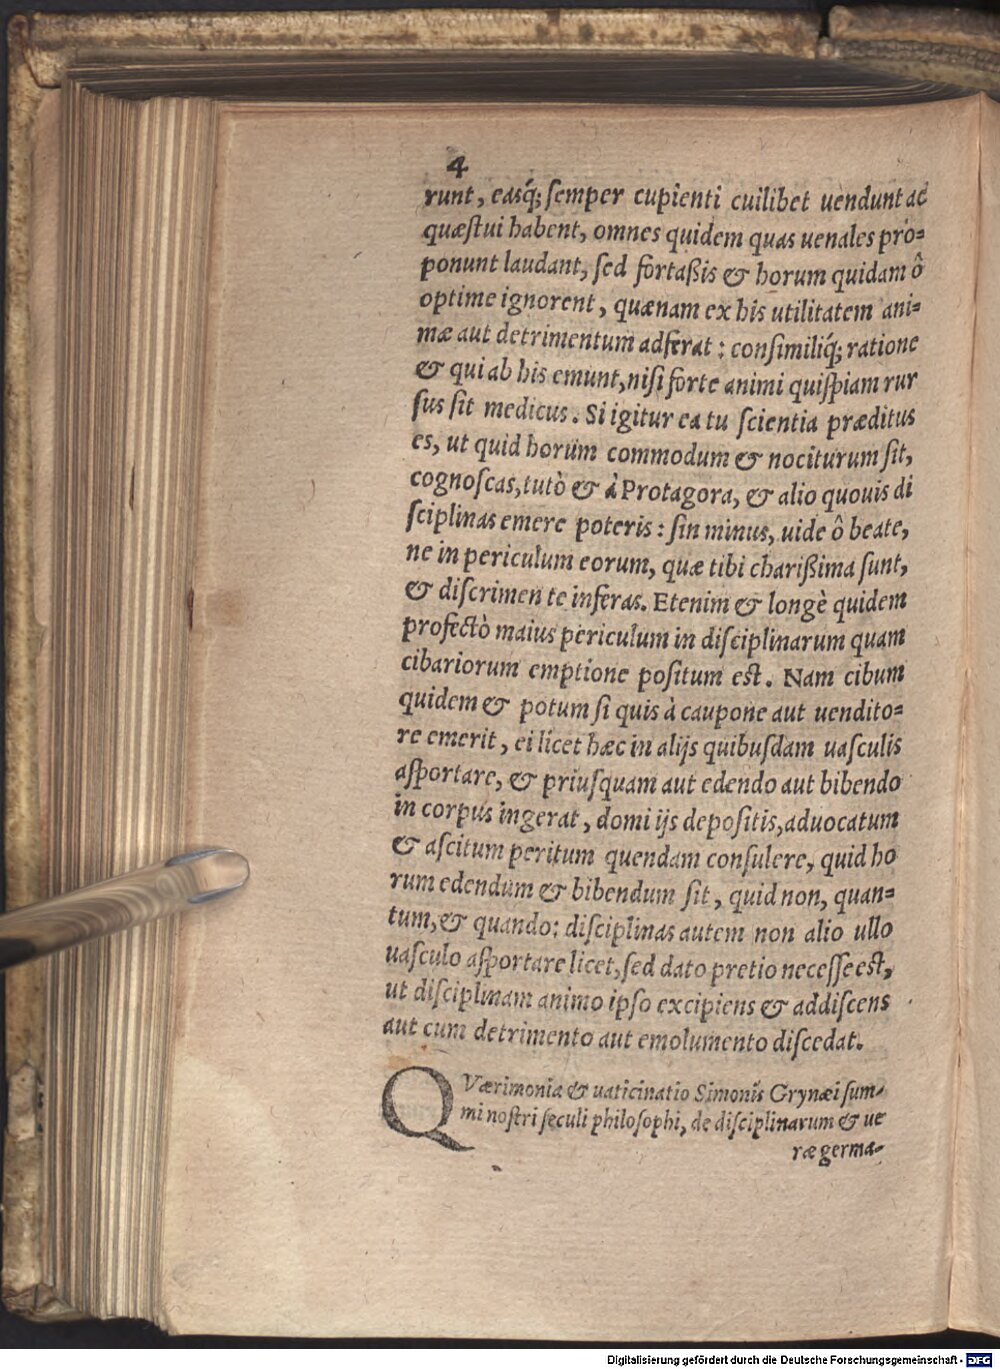 4
runt, easq́; ſemper cupienti cuilibet uendunt ac
quæſtui habent, omnes quidem quas uenales pro=
ponunt laudant, ſed fortaßis & horum quidam ô
optime ignorent, quænam ex his utilitatem ani=
mæ aut detrimentum adferat : conſimiliq́; ratione
& qui ab his emunt, niſi forte animi quiſpiam rur
ſus ſit medicus. Si igitur ea tu ſcientia præditus
es, ut quid horum commodum & nociturum ſit,
cognoſcas, tutò & à Protagora, & alio quouis di
ſciplinas emere poteris : ſin minus, uide ô beate,
ne in periculum eorum, quæ tibi charißima ſunt,
& diſcrimen te inferas. Etenim & longè quidem
profectò maius periculum in diſciplinarum quam
cibariorum emptione poſitum eſt. Nam cibum
quidem & potum ſi quis à caupone aut uendito=
re emerit, ei licet hæc in alijs quibuſdam uaſculis
aſportare, & priuſquam aut edendo aut bibendo
in corpus ingerat, domi ijs depoſitis, aduocatum
& aſcitum peritum quendam conſulere, quid ho
rum edendum & bibendum ſit, quid non, quan=
tum, & quando: diſciplinas autem non alio ullo
uaſculo aſportare licet, ſed dato pretio neceſſe eſt,
ut diſciplinam animo ipſo excipiens & addiſcens
aut cum detrimento aut emolumento diſcedat.
QVærimonia & uaticinatio Simonis Grynæi ſum=
mi noſtri ſeculi philoſophi, de diſciplinarum & ue
ræ germa=
Digitalisierung gefördert durch die Deutsche Forschungsgemeinschaft - DFG